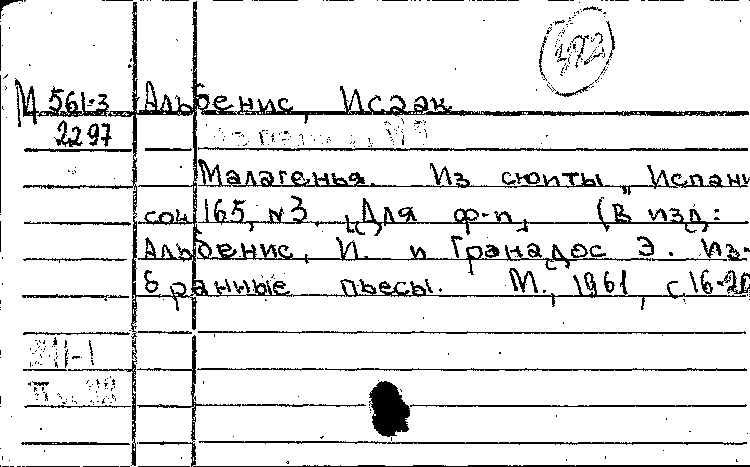 392
М 561-3 Альбенис, Исаак.
2297
Малагенья. Из сюиты „Испани
соч. 165, №3. [Для ф-п.] (В изд:
Альбенис, И. и Гранадос Э. Из-
бранные пьесы. М., 1961, с.16-20